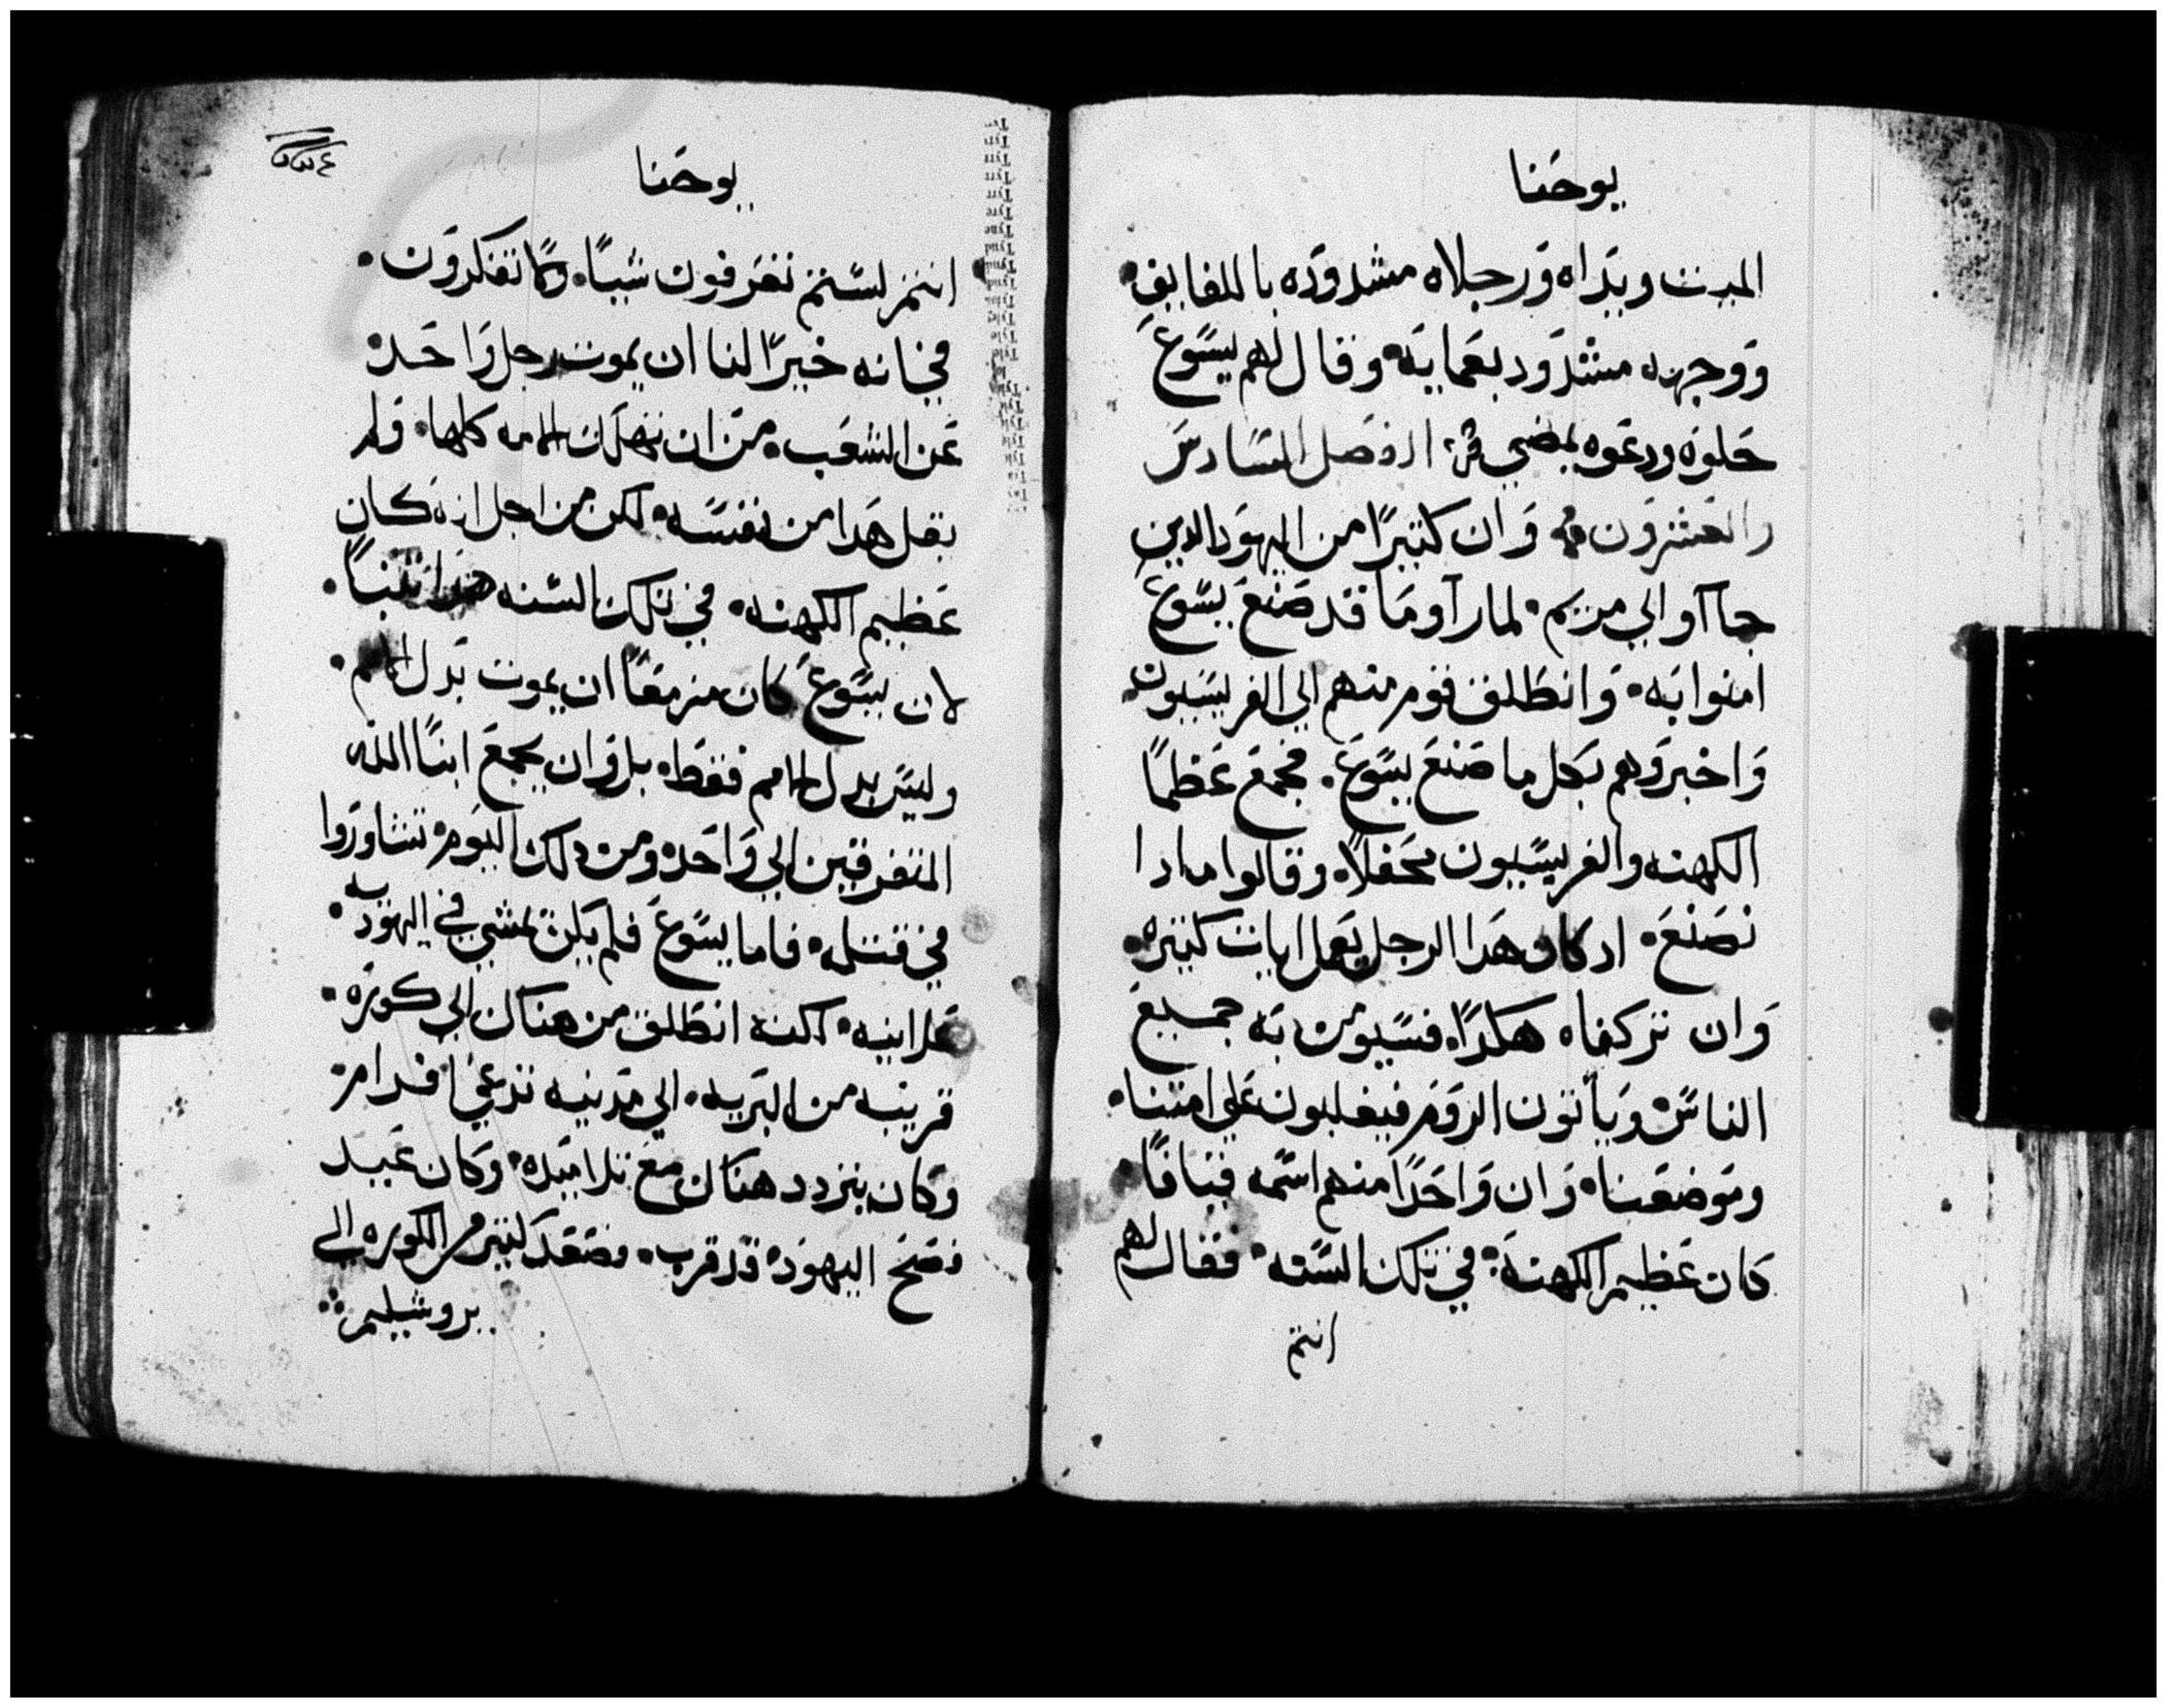 يوحنا
الميت ويداه ورجلاه مشدوده باللفايف
ووجهه مشدود بعمايه وقال لهم يسوع
حلوه ودعوه يمضي الفصل السادس
والعشرون وان كتيرًا من اليهود الدين
جاآو الي مريم لما رآو ما قد صنع يسوع
امنوا به وانطلق قوم منهم الي الفريسيون
واخبروهم بكل ما صنع يسوع فجمع عظمًا
الكهنه والفريسيون محفلًا وقالوا مادا
نصنع اد كان هدا الرجل يعمل ايات كتيره
وان تركناه هكدًا فسيومن به جميع
الناس وياتون الروم فيغلبون علي امتنا
وموضعنا وان واحدًا منهم اسمه قيافًا
كان عظيم الكهنة في تلك السنه فقال لهم
انتم
يوحنا
انتم لستم تعرفون شيًا ولا تفكرون
في انه خيرًا لنا ان يموت رجل واحد
عن الشعب من ان تهلك الامه كلها ولم
يقل هدا من نفسه لكن من اجل انه كان
عظيم الكهنه في تلك السنه تنبًا
لان يسوع كان مزمعًا ان يموت بدل الامم
وليس بدل الامم فقط بل وان يجمع ابنًا الله
المتفرقين الي واحد ومن دلك اليوم تشاوروا
في قتله فاما يسوع فلم يكن يمشي في اليهوديه
علانيه لكنه انطلق من هناك الي كوره
قريبه من البريه الي مدينه تدعي افرام
وكان يتردد هناك مع تلاميده وكان عيد
فصح اليهود قد قرب فصعد كتير من الكوره الي
يروشليم